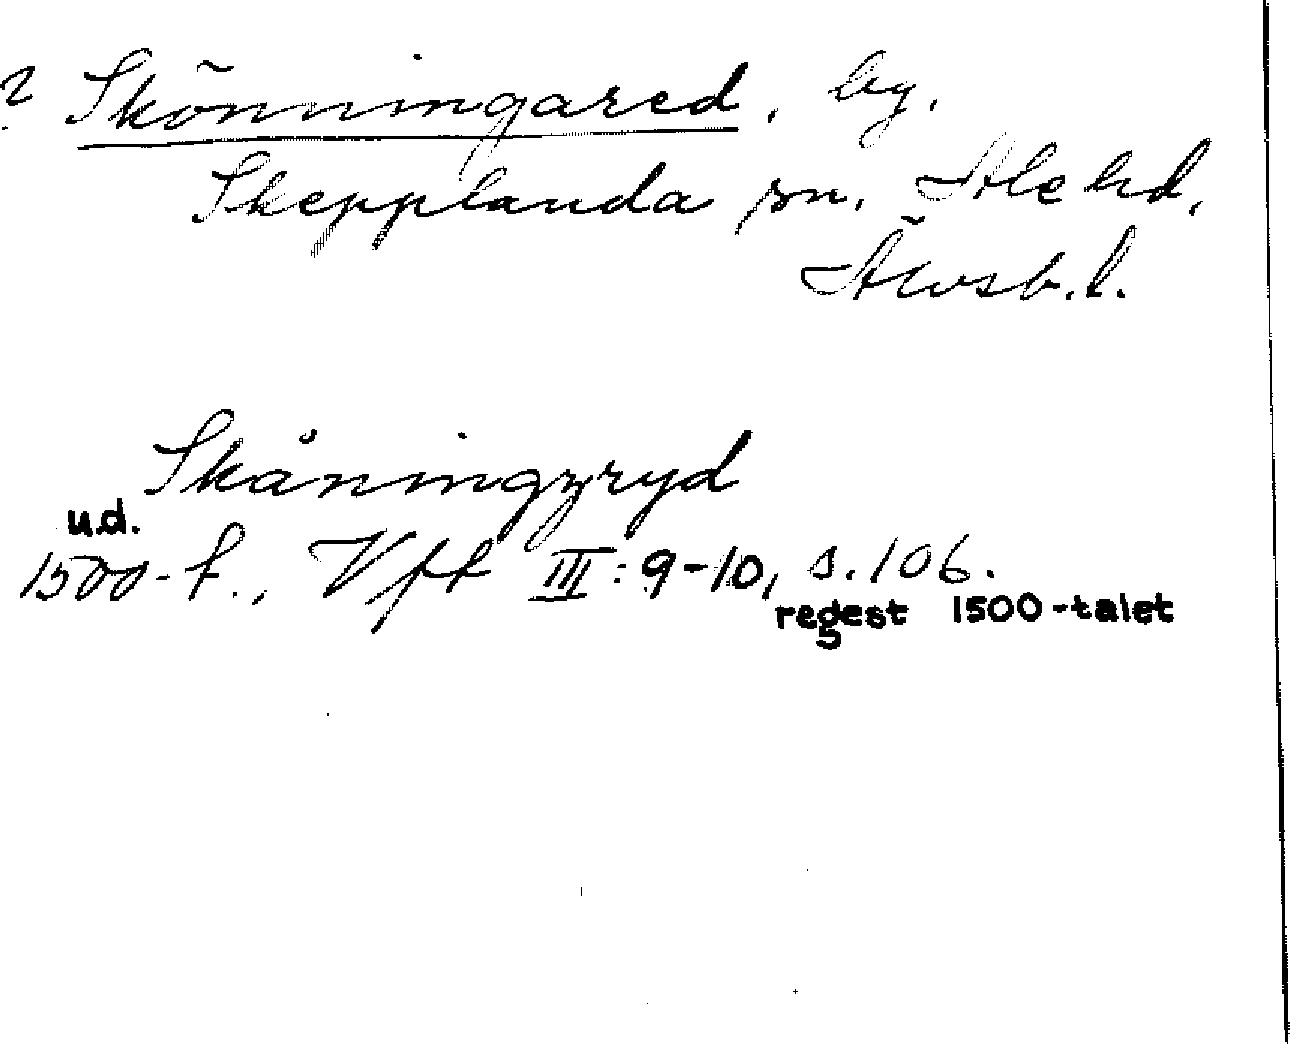 ? Skönningared, by.
Skepplanda sn. Ale hd.
Älvsb. l.
Skåningzryd
u.d.
1500-t., Vft III: 9-10, s. 106.
regest 1500-talet